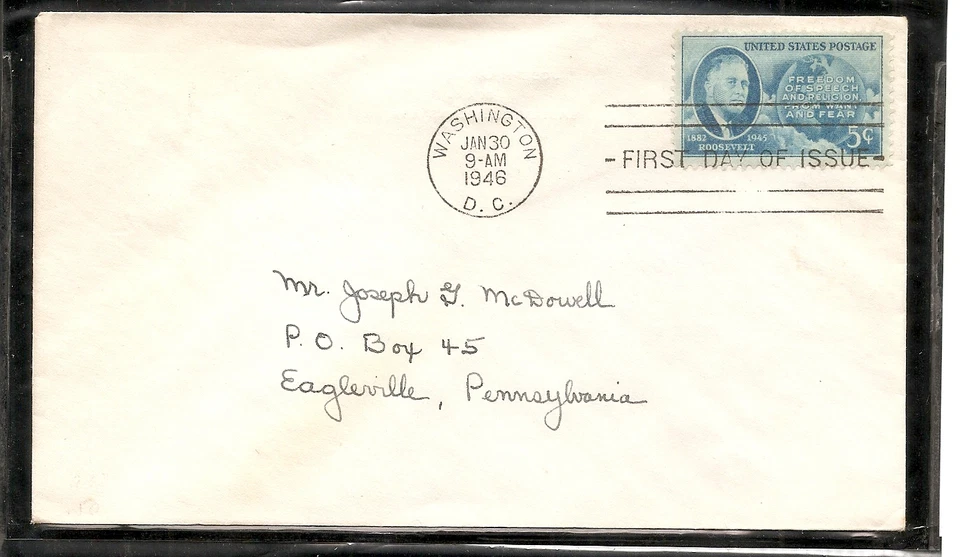 UNITED STATES POSTAGE
FREEDOM
OF SPEECH
AND RELIGION,
FROM WANT
AND FEAR
1882 1945
ROOSEVELT
5¢
WASHINGTON
JAN 30
9-AM
1946
D. C.
-FIRST DAY OF ISSUE-
Mr. Joseph G. McDowell
P. O. Box 45
Eagleville, Pennsylvania